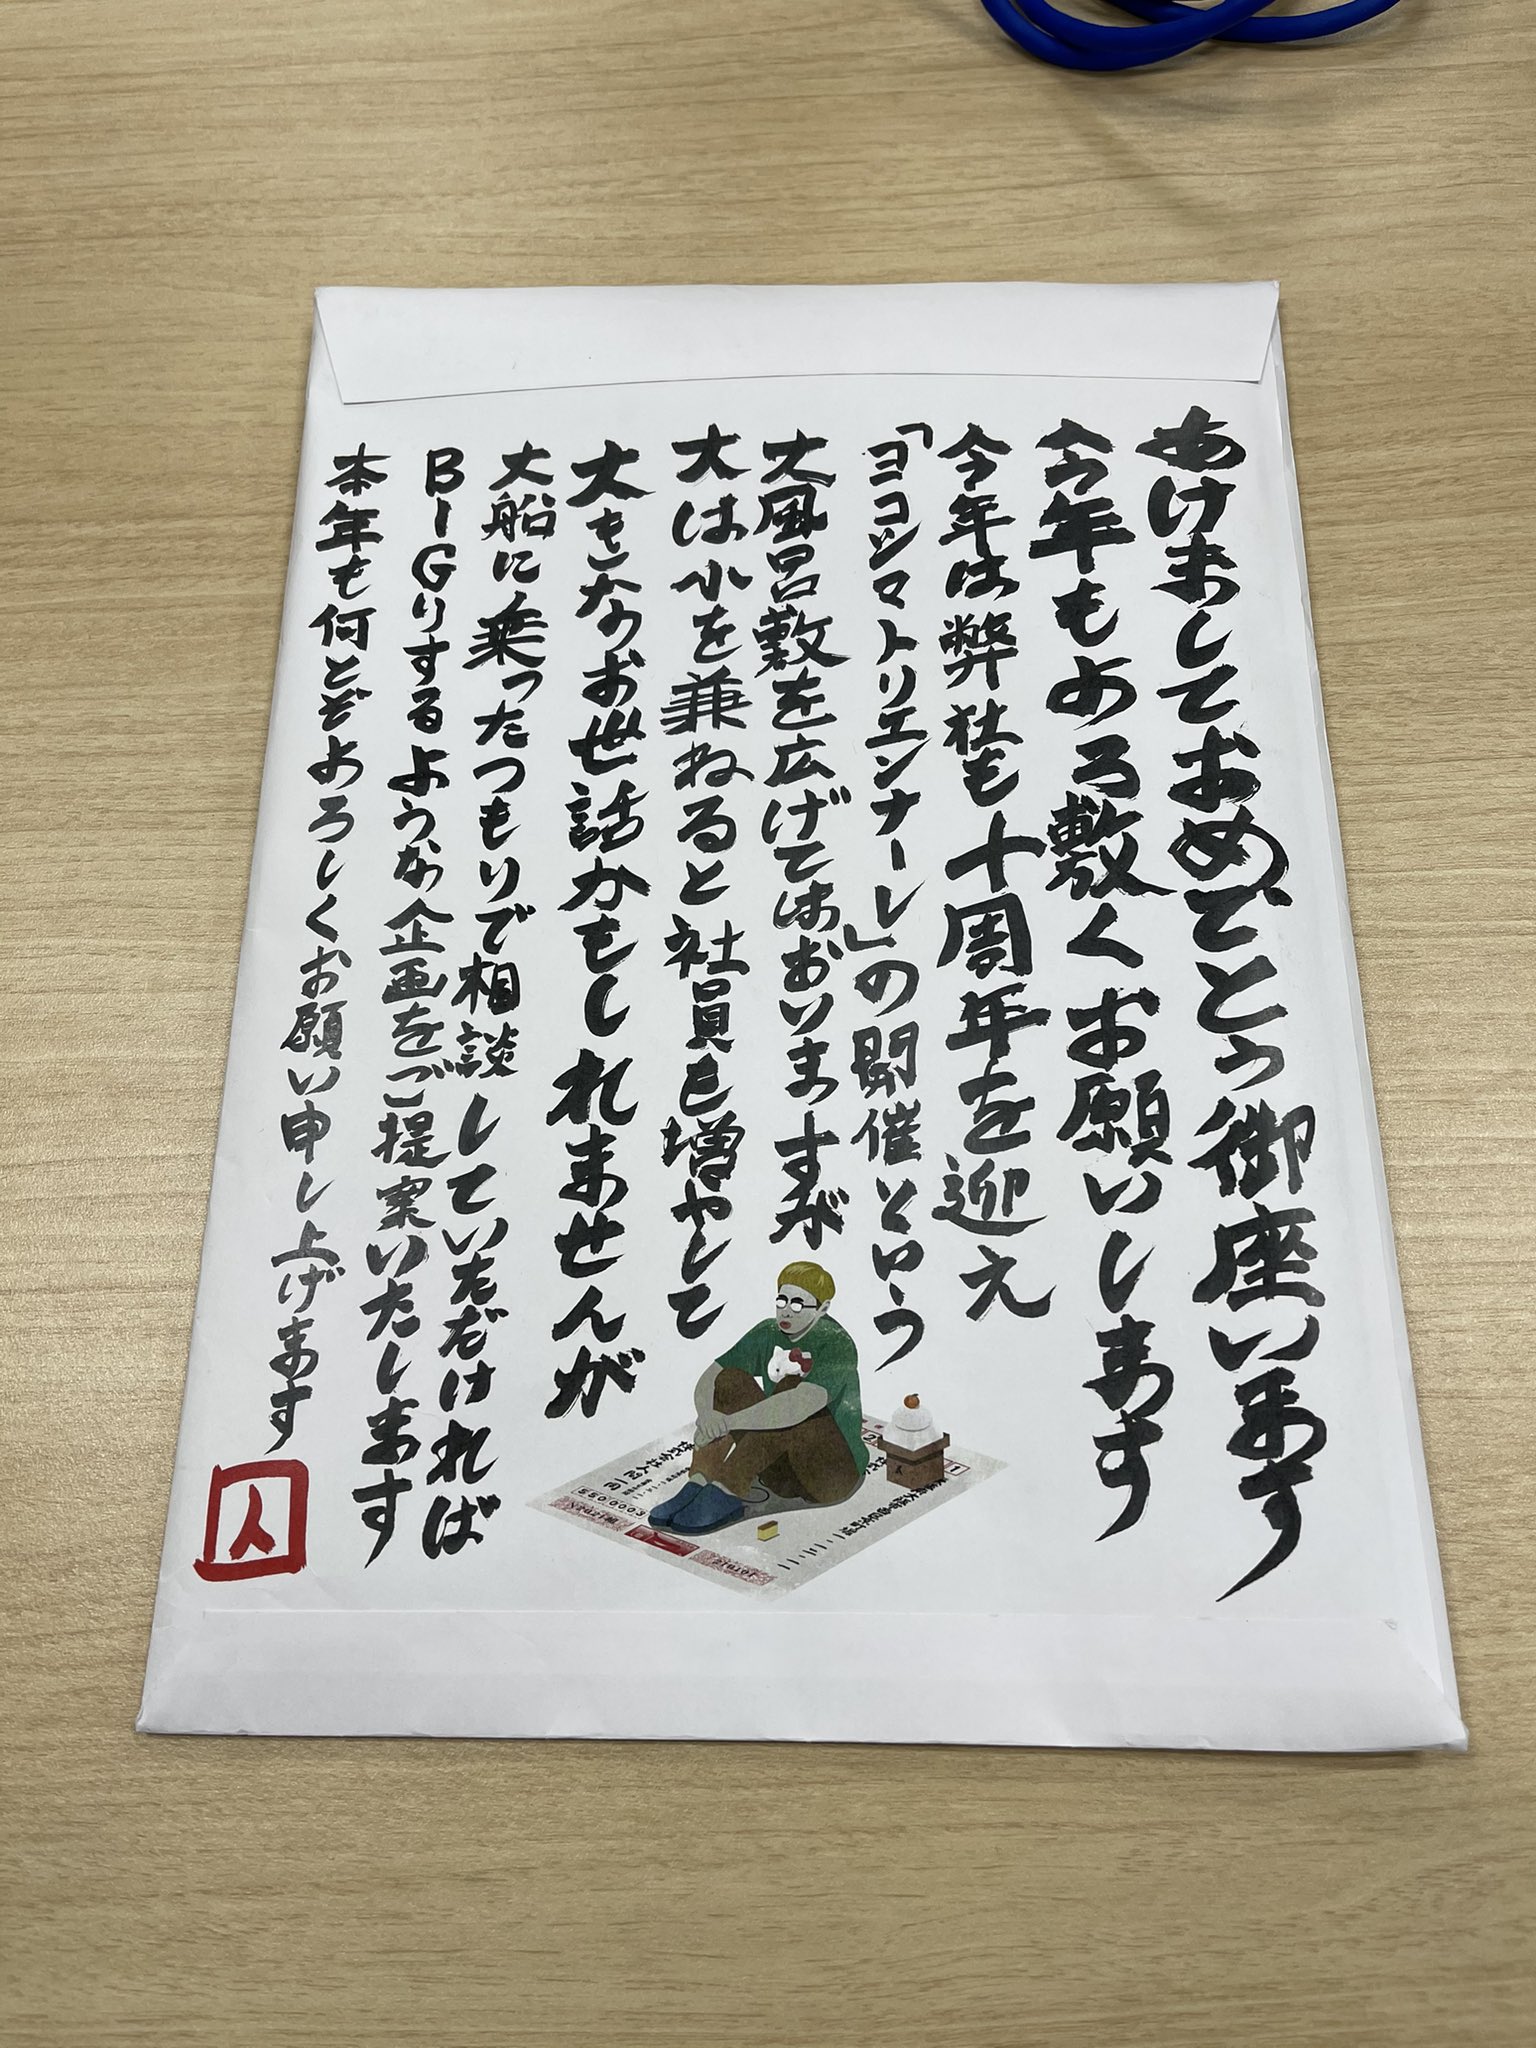 あけましておめでとう御座います
今年もよろ敷くお願いします
今年は弊社も十周年を迎え
「ヨコシマトリエンナーレ」の開催という
大風呂敷を広げてはおいますが
大は小を兼ねると社員も増やして
大きなお世話かもしれませんが
大船に乗ったつもりで相談していただければ
BIGりするような企画をご提案いたします
本年も何とぞよろしくお願い申し上げます
人
株式会社人間一同
5500003